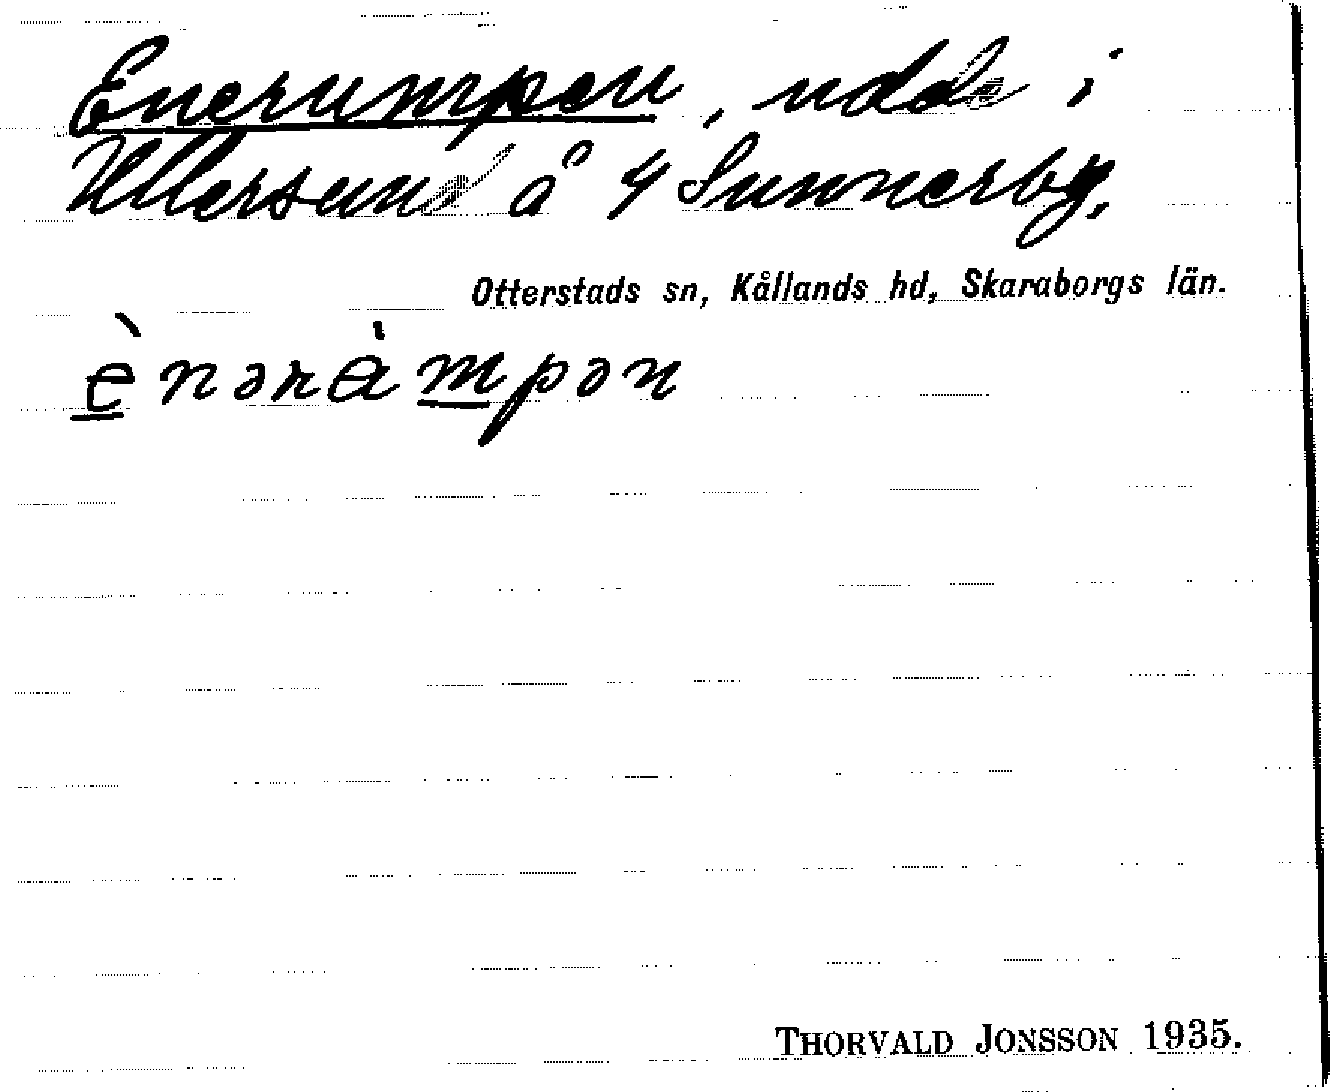 Enerumpen, udde i
Ullersund å 4 Sunnerby,
Otterstads sn, Kållands hd, Skaraborgs län.
ènəràmpən
THORVALD JONSSON 1935.